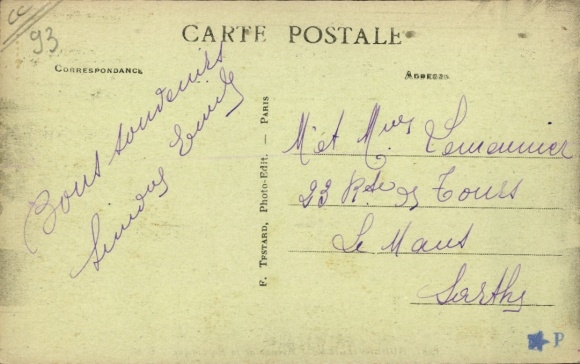 cc
93
CARTE POSTALE
CORRESPONDANCE
ADRESSE
Bons souvenirs
Emile
F. TESTARD, Photo-Edit. — PARIS
M et Mme Lemonnier
23 Rte de Tours
Le Mans
Sarthe
P